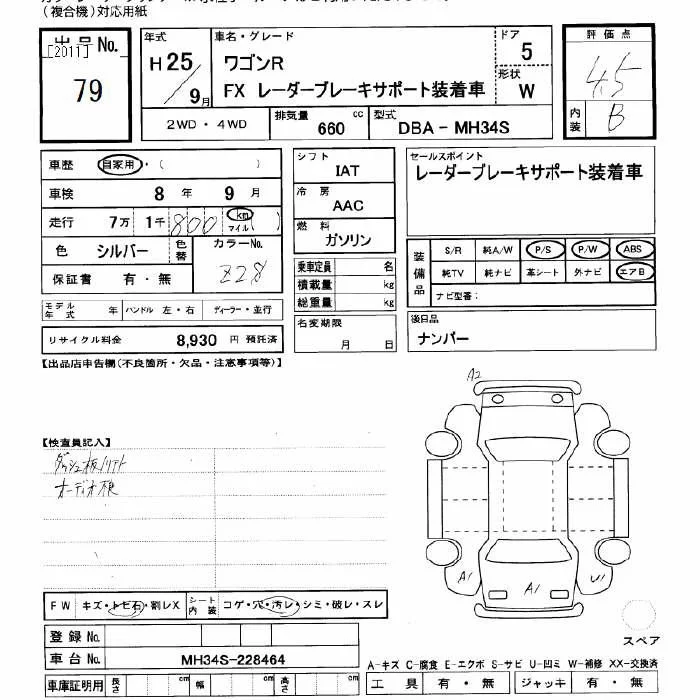 （複合機）対応用紙
出品No.
[2011]
79
年式
H25
9月
車名・グレード
ワゴンR
FX レーダーブレーキサポート装着車
ドア
5
形状
W
2WD ・ 4WD
排気量
660
cc
型式
DBA - MH34S
評価点
4.5
内装
B
車歴
自家用・（ ）
車検
8 年 9 月
走行
7万 1千 800
km
マイル
色
シルバー
色替
カラーNo.
Z2S
保証書
有 ・ 無
モデル年式
年
ハンドル 左・右
ディーラー・並行
リサイクル料金
8,930 円 預託済
シフト
IAT
冷房
AAC
燃料
ガソリン
乗車定員 名
積載量 kg
総重量 kg
名変期限
月 日
セールスポイント
レーダーブレーキサポート装着車
装備品
S/R 純A/W P/S P/W ABS
純TV 純ナビ 革シート 外ナビ エアB
ナビ型番：
後日品
ナンバー
【出品店申告欄(不良箇所・欠品・注意事項等)】
【検査員記入】
ダッシュ板ハリト
オーディオ横
A2
A1
A1
U1
スペア
FW キズ・トビ石・割レX
シート内装 コゲ・穴・汚レ・シミ・破レ・スレ
登録No.
車台No. MH34S-228464
車庫証明用 長さ cm 幅 cm 高さ cm
A-キズ C-腐食 E-エクボ S-サビ U-凹ミ W-補修 XX-交換済
工具 有 ・ 無 ジャッキ 有 ・ 無